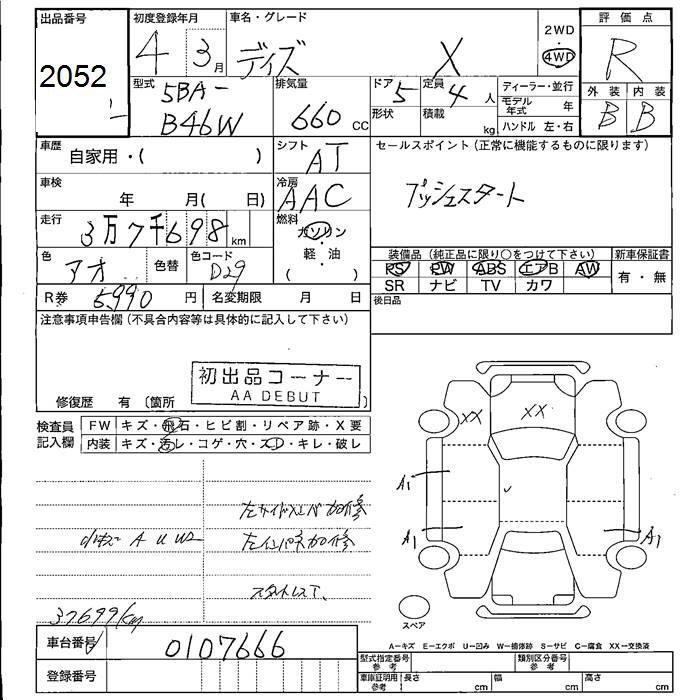 出品番号 初度登録年月 車名・グレード 2WD 評価点
2052 4 3月 デイズ X 4WD R
型式 排気量 ドア 定員 ディーラー・並行 外装 内装
5BA- 5 4人 モデル年式 年 B B
B46W 660 CC 形状 積載 kg ハンドル 左・右
車歴 シフト セールスポイント (正常に機能するものに限ります)
自家用・( ) AT
車検 冷房 プッシュスタート
年 月( 日) AAC
走行 燃料
3万7千698km ガソリン
色 色コード 軽・油 装備品 (純正品に限り○をつけて下さい) 新車保証書
アオ 色替 D29 ( ) PS PW ABS エアB AW 有・無
R券 5,990円 名変期限 月 日 SR ナビ TV カワ
注意事項申告欄 (不具合内容等は具体的に記入して下さい) 後日品
初出品コーナー
AA DEBUT
修復歴 有 (箇所 )
検査員 FW キズ・飛石・ヒビ割・リペア跡・X要
記入欄 内装 キズ・汚レ・コゲ・穴・スレ・キレ・破レ
XX XX
A1
左サイドメンバ加修
小キズ A U W2 左インパネ加修
A1 A1
スタットレス
37699km
スペア
車台番号 0107666
A－キズ E－エクボ U－凹み W－補修跡 S－サビ C－腐食 XX－交換済
登録番号 型式指定番号 参考 類別区分番号 参考
車庫証明用 参考 長さ cm 幅 cm 高さ cm